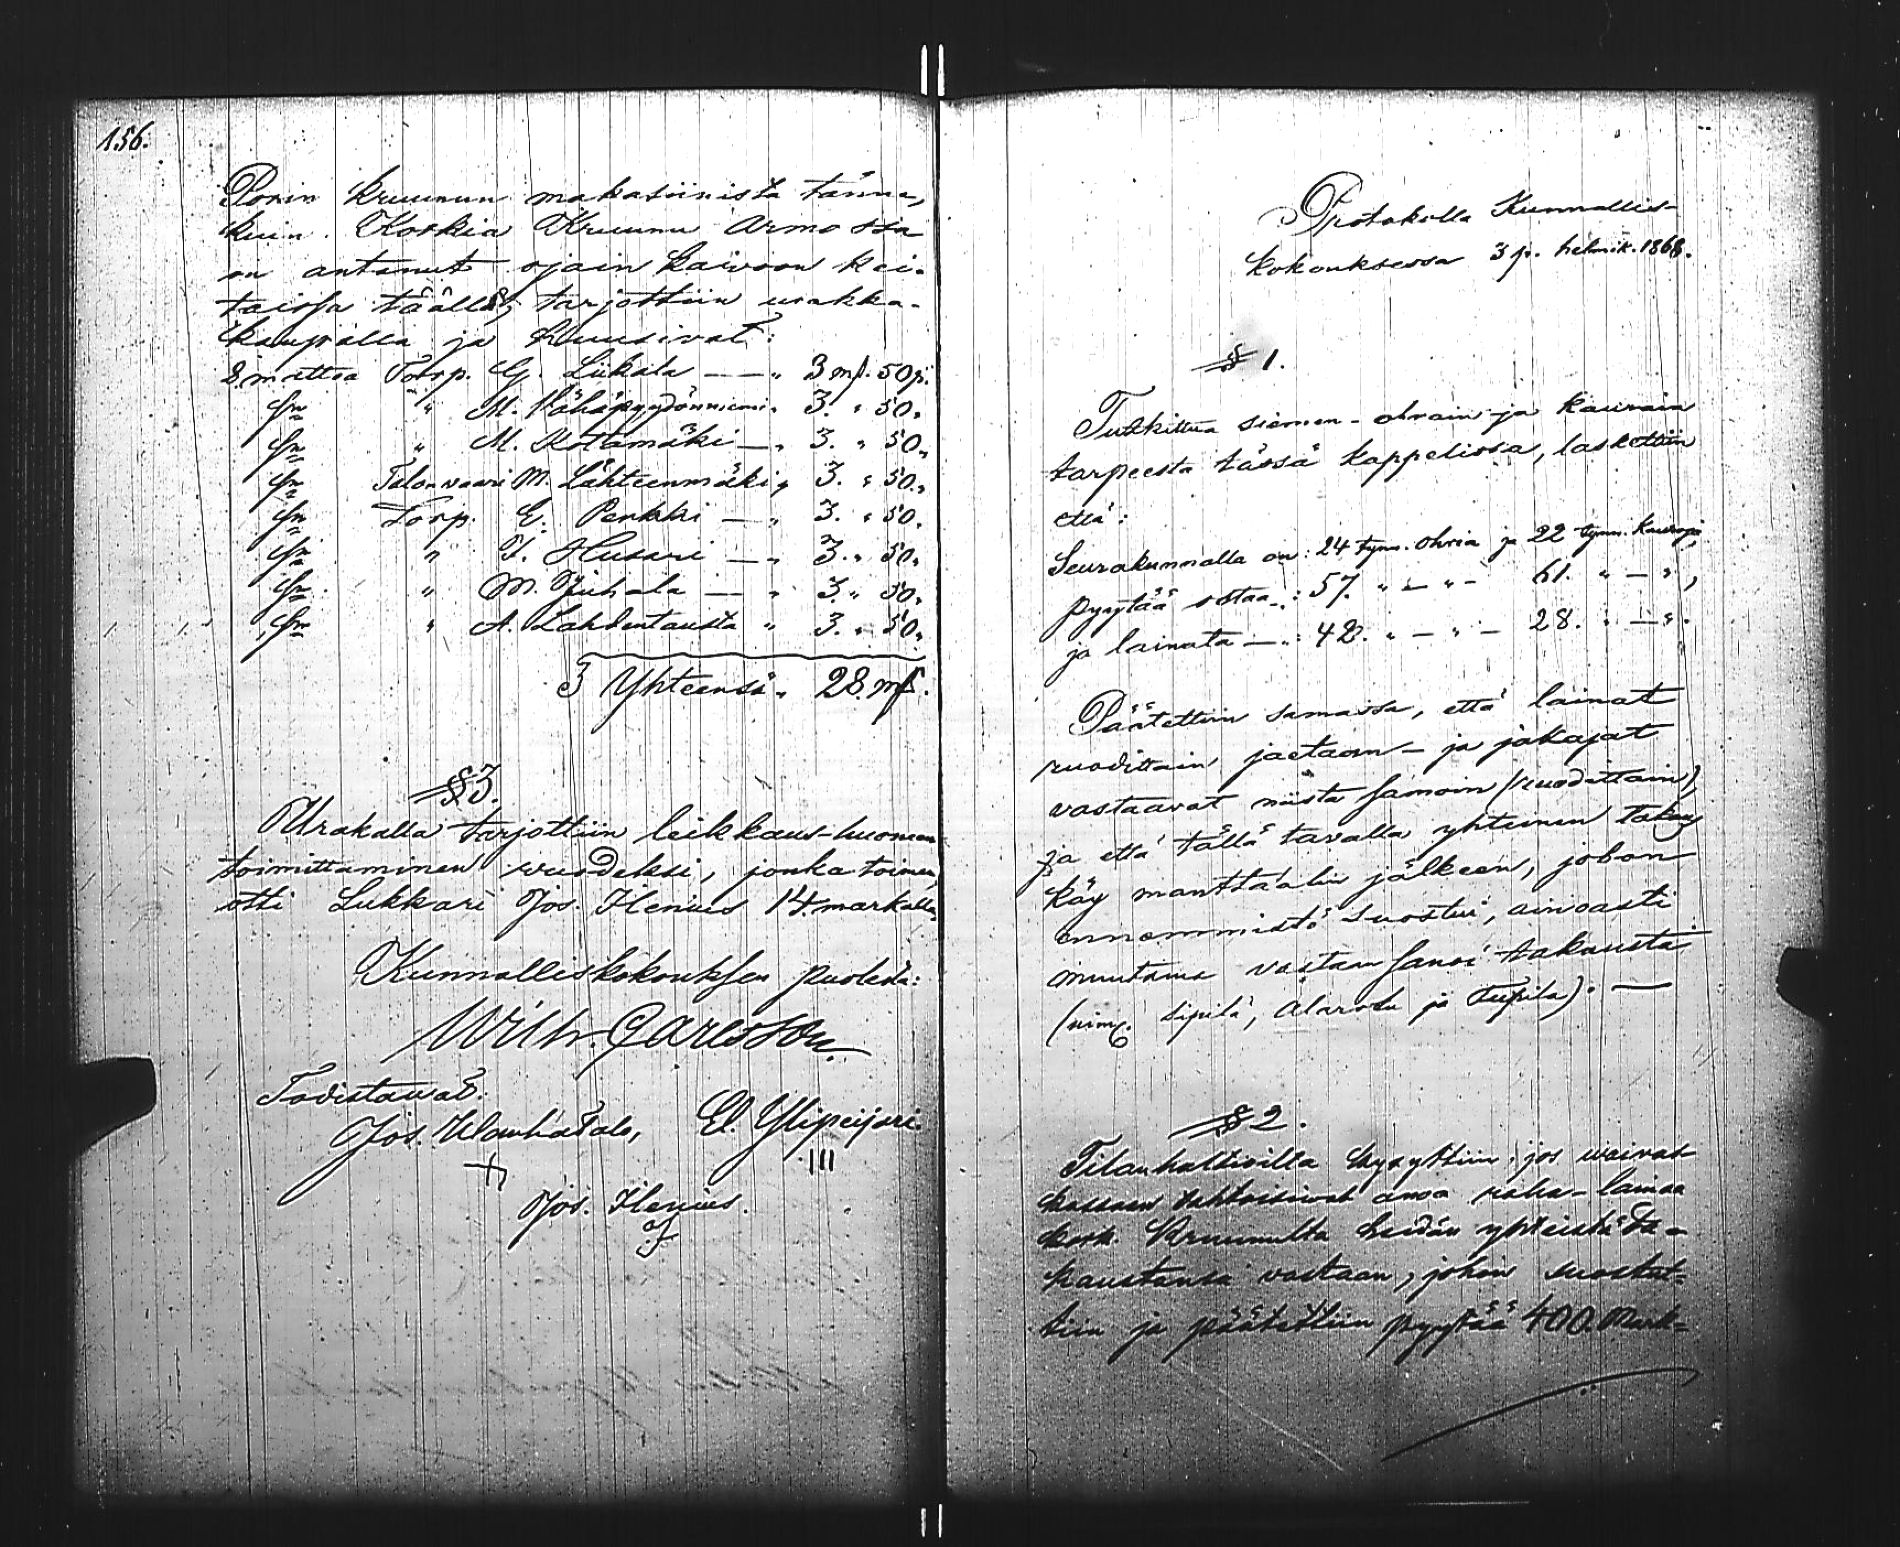 156.
Porin kruunun makasiinista tänne,
kuin Korkia Kruunu Armossa
on antanut ojain kaivoon kei-
taissa täällä, tarjottiin urakka-
kaupalla ja huusivat:
2 mattoa Torp. G. Liikala — „ 3 mk. 50 p.
„ M. Vähäpyydönniemi „ 3. „ 50 „
„ M. Kotamäki — „ 3. „ 50 „
Talonvaari M. Lähteenmäki „ 3. „ 50 „
Torp. E. Penkki — „ 3. „ 50 „
„ J. Husari — „ 3. „ 50 „
„ M. Juhala — „ 3. „ 50 „
„ A. Lahdentausta „ 3. „ 50 „
Yhteensä „ 28 mk.
§ 3.
Urakalla tarjottiin leikkaus-huoneen
toimittaminen vuodeksi, jonka toimen
otti Lukkari Jos. Henius 14. markalla.
Kunnalliskokouksen puolesta:
Wilh. Carlsson.
Todistavat:
Jos. Wanhatalo, El. Ylipeijari.
III
Jos. Henius.
Protokolla Kunnallis-
kokouksessa 3 p. helmik. 1868.
§ 1.
Tutkittua siemen-ohrain ja kaurain
tarpeesta tässä kappelissa, laskettiin
että:
Seurakunnalla on: 24 tynn. ohria ja 22 tynn. kauroja,
pyytää ostaa „: 57. „ — „ — 61. „ — „,
ja lainata — „: 42. „ — „ — 28. „ — „.
Päätettiin samassa, että lainat
ruodittain jaetaan — ja jakajat
vastaavat niistä samoin (ruodittain),
ja että tällä tavalla yhteinen takaus
käy manttaalin jälkeen, johon
ennemmistö suostui, ainoasti
muutama vastaan sanoi takausta
(nim. Sipilä, Alarotu ja). —
§ 2.
Tilanhaltioilta kysyttiin, jos waivas-
kassaan tahtoisivat anoa raha-lainaa
kork. Kruunulta heidän yhteistä ta-
kaustansa vastaan, johon suostut-
tiin ja päätettiin pyytää 400. Mark-